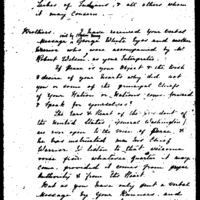 Lakes of        , & all others whom
it may Concern —
Brothers.      have received your Verbal
Message by George Whyte Eyes and another
          who were accompanied by Mr
Robert Wilson, as your Interpreter.
If Peace is your Object & the Wish
& desire of your Hearts why did not
you or some of the principal Chiefs
of your Nation or Nations come forward
& Speak for yourselves?
The Ears & Heart of the President of
the United States (General Washington)
are ever open to the voice of Peace, &
he has instructed me his Chief
Warrior to listen to that welcome
voice from whatever Quarter it may
come, provided it comes from proper
Authority & from the Heart.
But as you have only sent a Verbal
Message by your Runners, and